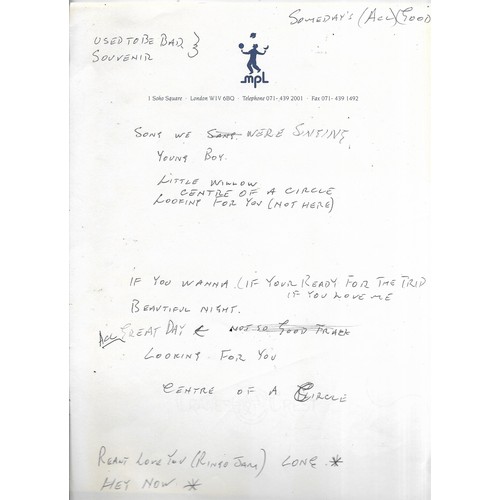 SOMEDAY'S (ALL) GOOD
USED TO BE BAD }
SOUVENIR
mpl
1 Soho Square · London W1V 6BQ · Telephone 071-439 2001 · Fax 071-439 1492
SONG WE SANG WERE SINGING
YOUNG BOY.
LITTLE WILLOW
CENTRE OF A CIRCLE
LOOKING FOR YOU (NOT HERE)
IF YOU WANNA. (IF YOUR READY FOR THE TRIP
IF YOU LOVE ME
BEAUTIFUL NIGHT.
ALL GREAT DAY NOT SO GOOD TRACK
LOOKING FOR YOU
CENTRE OF A CIRCLE
REALLY LOVE YOU (RINGO JAM) LONG. *
HEY NOW. *